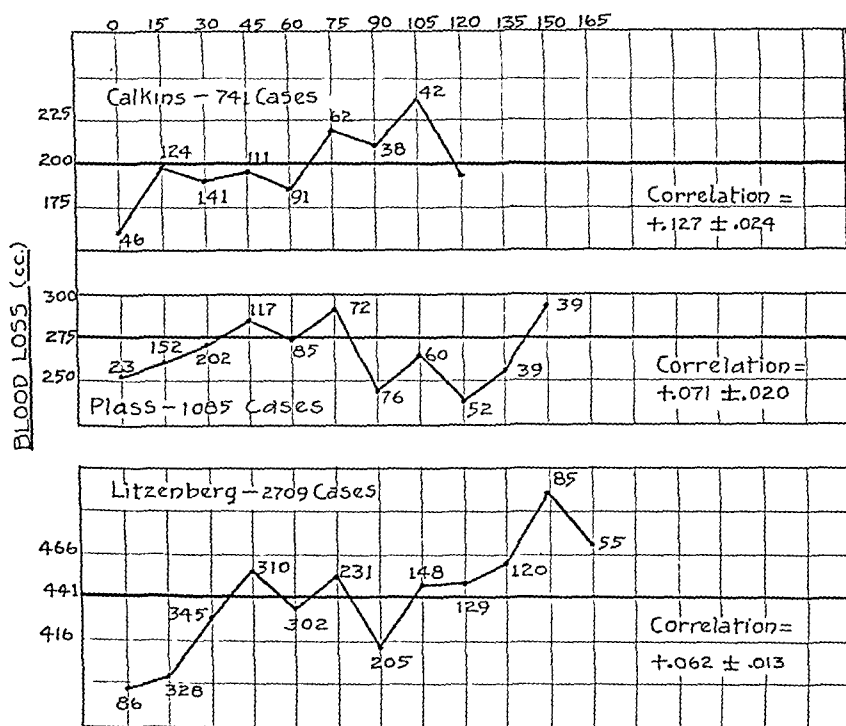 0 15 30 45 60 75 90 105 120 135 150 165
BLOOD LOSS (cc.)
Calkins – 741 Cases
225
200
175
46 124 141 111 91 62 38 42
Correlation =
+.127 ± .024
300
275
250
23 152 202 117 85 72 76 60 52 39 39
Plass – 1085 Cases
Correlation =
+.071 ± .020
Litzenberg – 2709 Cases
466
441
416
86 328 345 310 302 231 205 148 129 120 85 55
Correlation =
+.062 ± .013